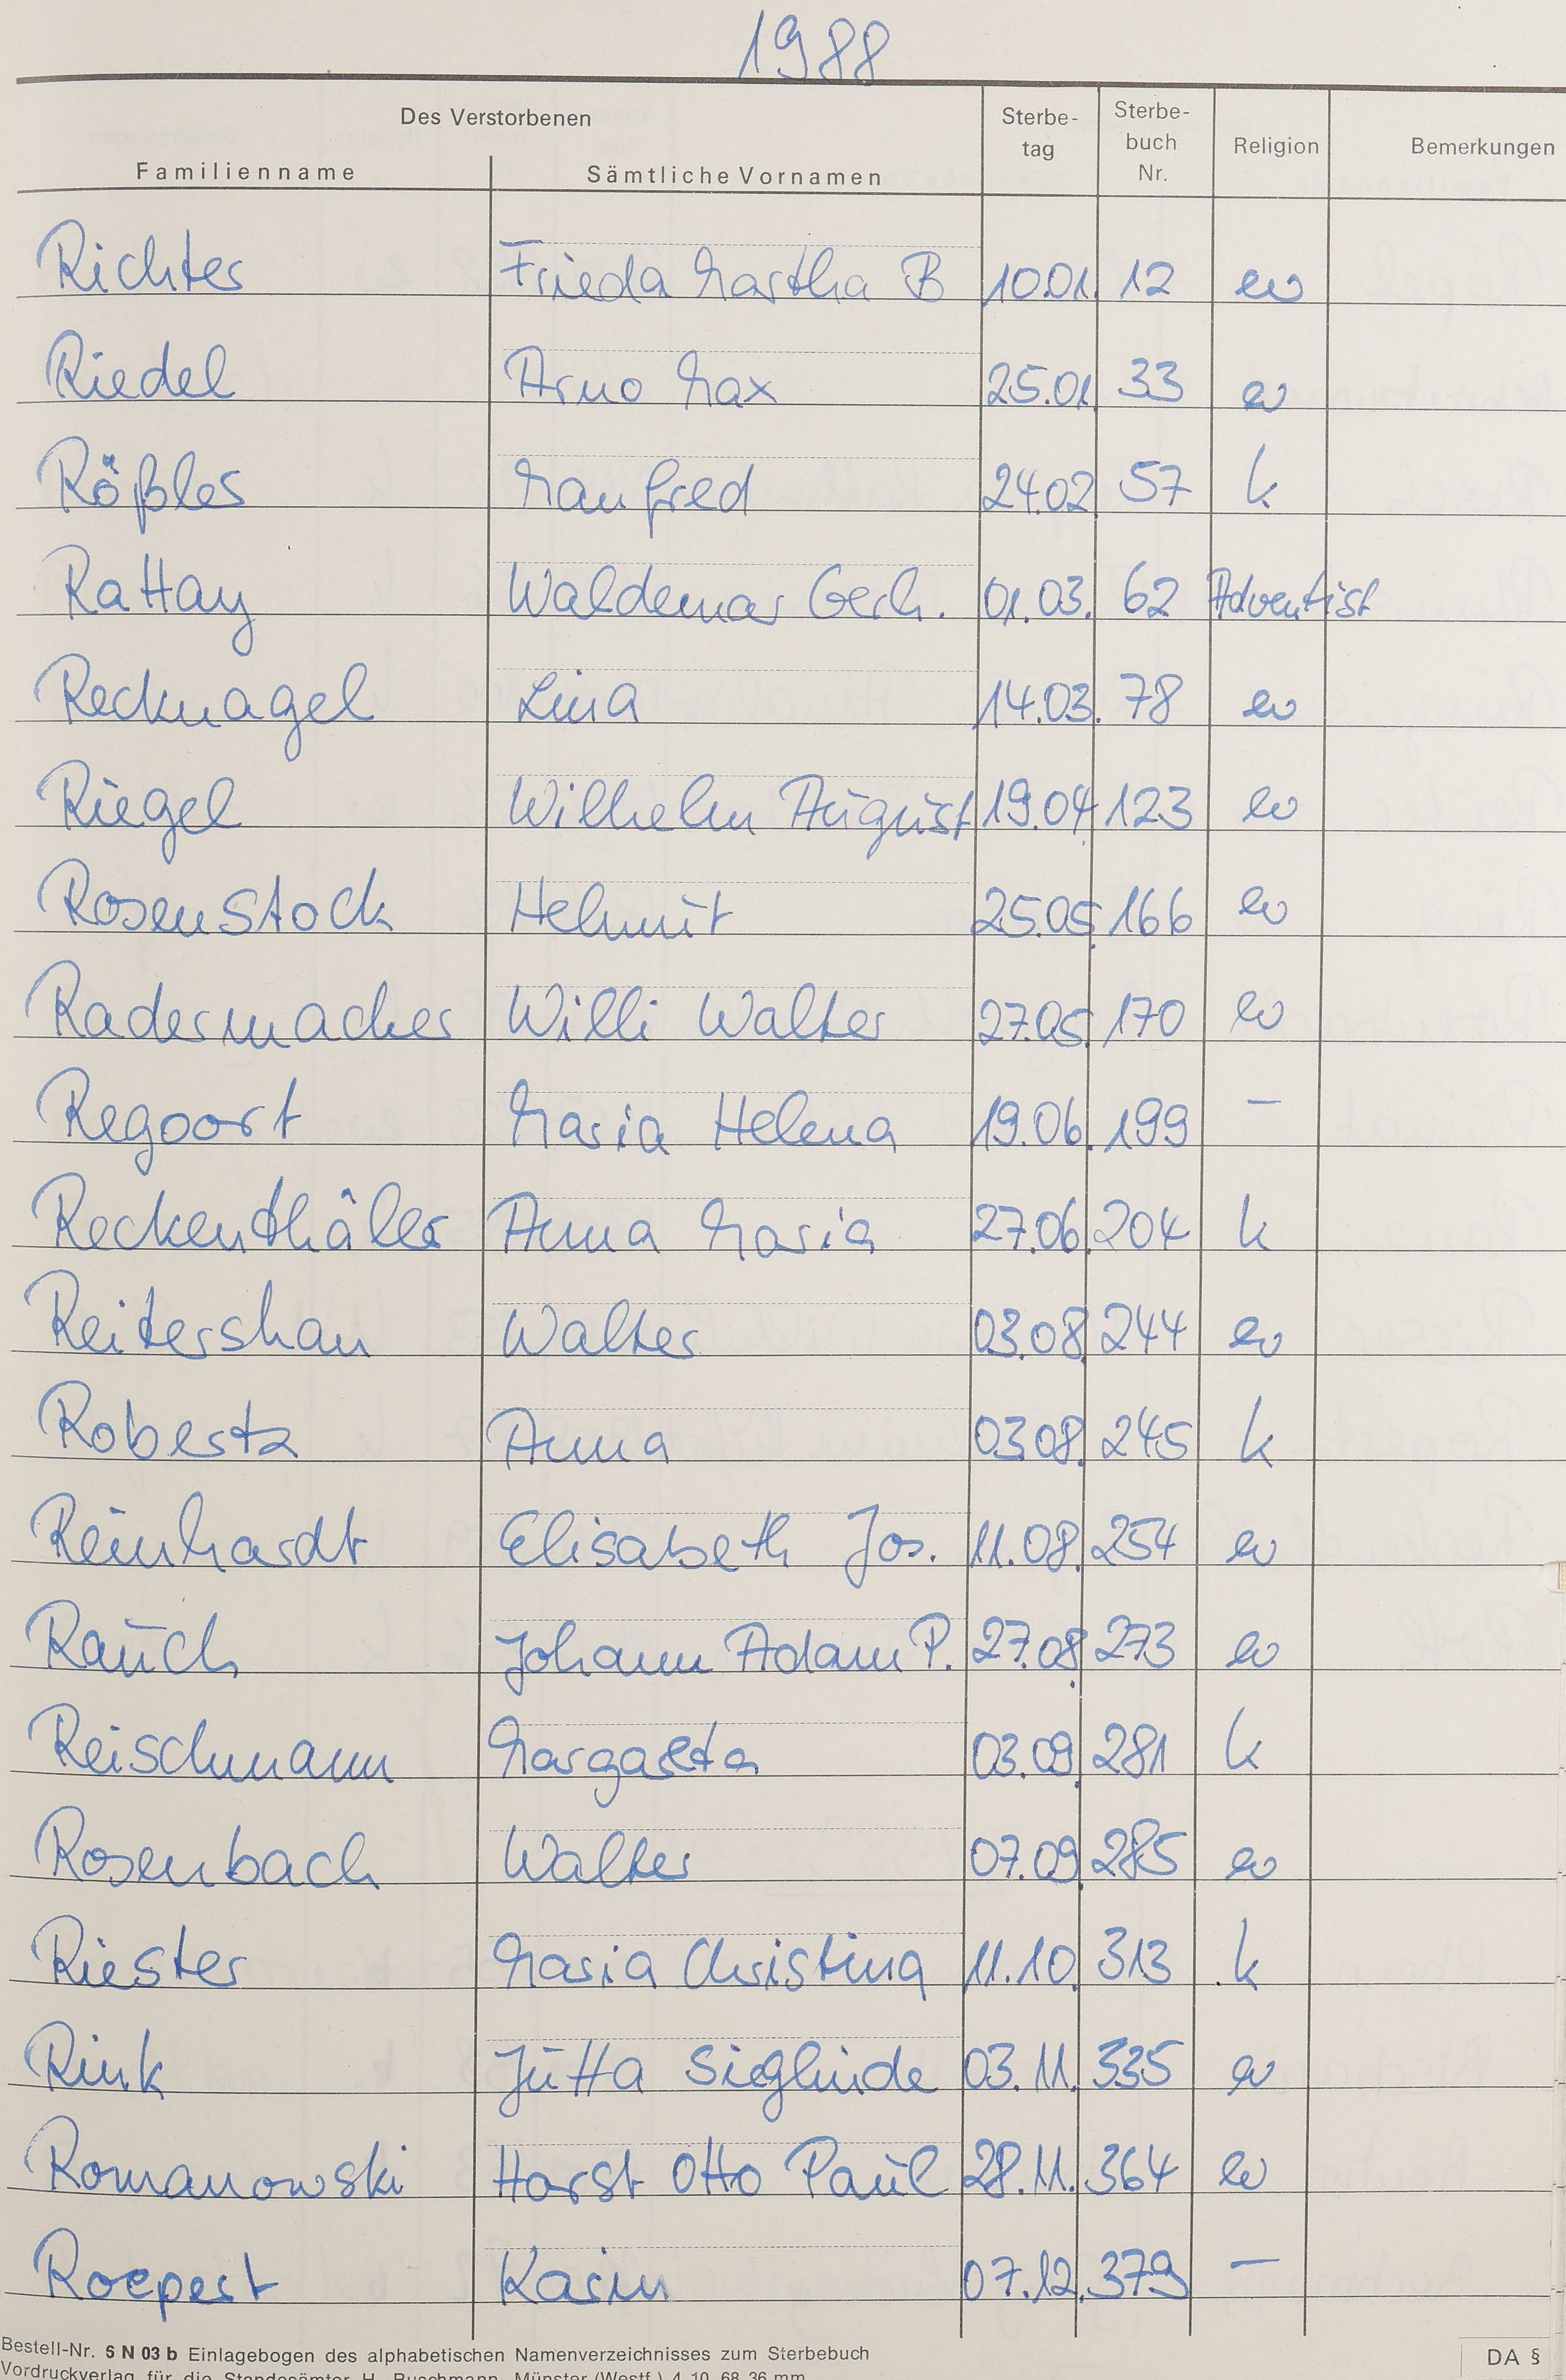 1988
Des Verstorbenen
Familienname Sämtliche Vornamen Sterbe-tag Sterbe-buch Nr. Religion Bemerkungen
Richter Frieda Martha B 10.01. 12 ev
Riedel Arno Max 25.01. 33 ev
Rößler Manfred 24.02. 57 k
Rattay Waldemar Gerh. 01.03. 62 Adventist
Recknagel Lina 14.03. 78 ev
Riegel Wilhelm August 19.04. 123 ev
Rosenstock Helmut 25.05. 166 ev
Radermacher Willi Walter 27.05. 170 ev
Regoort Maria Helena 19.06. 199 —
Reckenthäler Anna Maria 27.06. 204 k
Reitershan Walter 03.08. 244 ev
Robertz Anna 03.08. 245 k
Reinhardt Elisabeth Jos. 11.08. 254 ev
Rauch Johann Adam P. 27.08. 273 ev
Reischmann Margareta 03.09. 281 k
Rosenbach Walter 07.09. 285 ev
Riester Maria Christina 11.10. 313 k
Rink Jutta Sieglinde 03.11. 335 ev
Romanowski Horst Otto Paul 28.11. 364 ev
Roepert Karin 07.12. 379 —
Bestell-Nr. 5 N 03 b Einlagebogen des alphabetischen Namenverzeichnisses zum Sterbebuch DA §
Vordruckverlag für die Standesämter H. Buschmann, Münster (Westf.) 4. 10. 68 36 mm